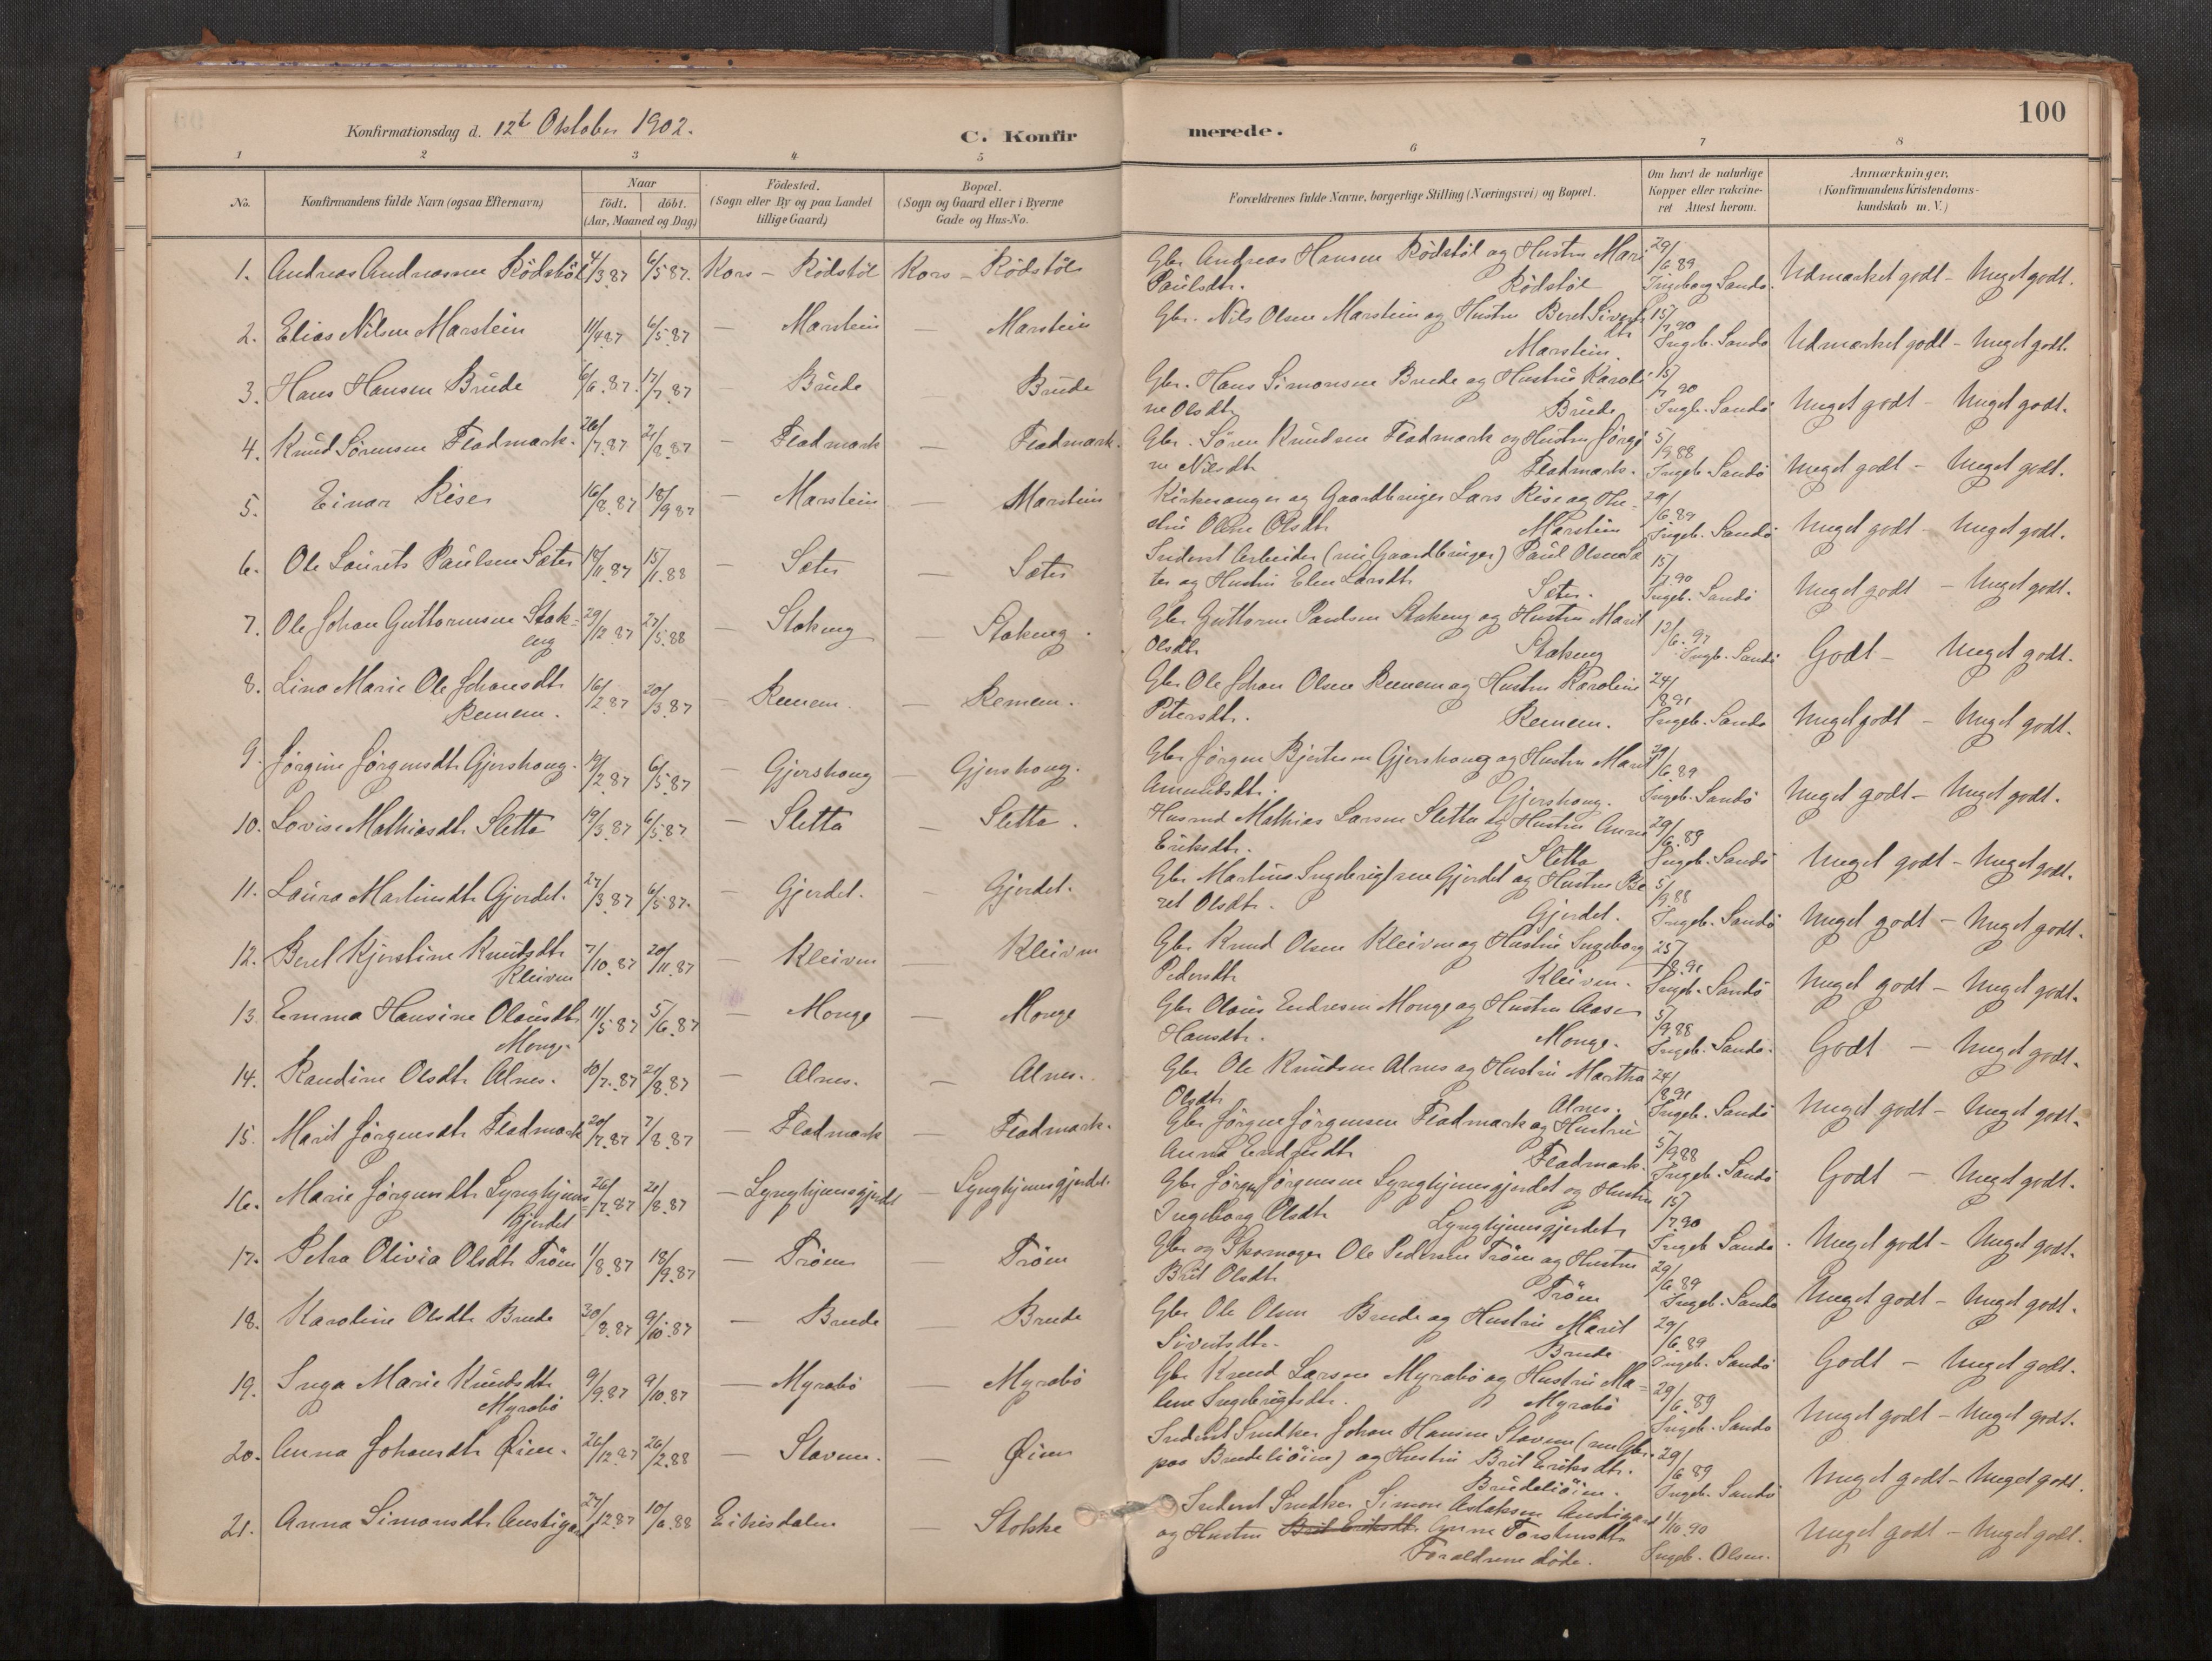 100
Konfirmationsdag d. 12te Oktober 1902.
C. Konfirmerede.
1 2 3 4 5 6 7 8
No.
Konfirmandens fulde Navn (ogsaa Efternavn)
Naar
födt. döbt.
(Aar, Maaned og Dag)
Födested.
(Sogn eller By og paa Landet
tillige Gaard)
Bopæl.
(Sogn og Gaard eller i Byerne
Gade og Hus-No.
Forældrenes fulde Navne, borgerlige Stilling (Næringsvei) og Bopæl.
Om havt de naturlige
Kopper eller vakcine-
ret Attest herom.
Anmærkninger,
(Konfirmandens Kristendoms-
kundskab m. V.)
1. Andreas Andreassen Rödstöl 4/3 87 6/5 87. Kors - Rödstöl Kors - Rödstöl Gbr. Andreas Hansen Rödstöl og Hustru Mari 29/6 89
Paulsdtr. Rödstöl Ingeborg Sandö. Udmærket godt - Meget godt.
2. Elias Nilsen Marstein 11/4 87 6/5 87 — Marstein — Marstein Gbr. Nils Olsen Marstein og Hustru Beret Siverts 15/7 90
dtr. Marstein. Ingeb. Sandö Udmærket godt - Meget godt.
3. Hans Hansen Brude 6/6. 87. 17/7. 87 Brude Brude Gbr. Hans Simonsen Brude og Hustru Karoli 15/7 90
ne Olsdtr. Brude Ingb. Sandö Meget godt - Meget godt.
4. Knud Sörensen Fladmark. 26/7. 87 21/8. 87 — Fladmark — Fladmark. Gbr. Sören Knudsen Fladmark og Hustru Jörgi 5/9 88
ne Nilsdtr. Fladmark. Ingeb. Sandö Meget godt - Meget godt.
5. Einar Riser 16/8. 87 18/9 87 — Marstein — Marstein Kirkesanger og Gaardbruger Lars Rise og Hu- 29/6 89
stru Oline Olsdtr. Marstein Ingeb. Sandö Meget godt - Meget godt.
6. Ole Laurits Paulsen Sæter 18/11. 87 15/1. 88 — Sæter — Sæter Inderst Arbeider (nu Gaardbruger) Paul Olsen Sæ 15/7 90
ter og Hustru Elen Larsdtr. Sæter. Ingeb. Sandö Meget godt - Meget godt.
7. Ole Johan Guttormsen Stok- 29/12 87 27/5. 88 — Stokeng — Stokeng. Gbr Guttorm Paulsen Stokeng og Hustru Marit 12/6. 97
eng Olsdtr. Stokeng Ingb. Sandö Godt - Meget godt.
8. Lina Marie Ole Johansdtr. 16/2 87 20/3. 87 — Remem. — Remem. Gbr Ole Johan Olsen Remem og Hustru Karoline 24/8 91
Remem. Petersdtr. Remem. Ingeb. Sandö Meget godt - Meget godt.
9. Jörgine Jörgensdtr. Gjershoug. 19/2. 87 6/5. 87 — Gjershoug — Gjershoug. Gbr Jörgen Bjertesen Gjershoug og Hustru Marit 29/6. 89
Amundsdtr. Gjershoug. Ingeb. Sandö Meget godt - Meget godt.
10. Lovise Mathiasdtr. Sletta 19/3. 87 6/5. 87 — Sletta — Sletta. Husmd Mathias Larsen Sletta og Hustru Anne 29/6. 89
Eriksdtr. Sletta Ingeb. Sandö Meget godt - Meget godt.
11. Laura Martinsdtr. Gjerdet. 27/3 87 6/5 87. — Gjerdet. — Gjerdet. Gbr Martinus Ingebrigtsen Gjerdet og Hustru Be 5/9 88
ret Olsdtr. Gjerdet. Ingeb. Sandö Meget godt - Meget godt.
12. Beret Kjerstine Knudsdtr. 7/10. 87 20/11. 87 — Kleiven — Kleiven Gbr Knud Olsen Kleiven og Hustru Ingeborg 25/8. 91
Kleiven Pedersdtr. Kleiven. Ingeb. Sandö Meget godt - Meget godt.
13. Emma Hansine Olausdtr. 11/5. 87 5/6. 87 — Monge — Monge Gbr Olaus Endresen Monge og Hustru Aase 5/9 88
Monge. Hansdtr. Monge. Ingeb. Sandö. Godt - Meget godt.
14. Randine Olsdtr. Alnes. 30/7. 87 21/8. 87 — Alnes. — Alnes. Gbr Ole Knudsen Alnes og Hustru Martha 24/8. 91
Olsdtr. Alnes. Ingeb. Sandö Meget godt - Meget godt.
15. Marit Jörgensdtr. Fladmark 20/7. 87 7/8. 87 — Fladmark — Fladmark. Gbr Jörgen Jörgensen Fladmark og Hustru 5/9 88
Anna Endresdtr. Fladmark. Ingeb. Sandö Godt - Meget godt.
16. Marie Jörgensdtr. Lynghjems 26/7. 87 21/8. 87 — Lynghjemsgjerdet — Lynghjemsgjerdet. Gbr Jörgen Jörgensen Lynghjemsgjerdet og Hustru 15/7. 90
Gjerdet Ingeborg Olsdtr. Lynghjemsgjerdet. Ingeb Sandö. Meget godt - Meget godt.
17. Petra Olivia Olsdtr. Tröen 1/8. 87 18/9. 87 — Tröen — Tröen Gbr og Skomager Ole Pedersen Tröen og Hustru 29/6. 89
Brit Olsdtr. Tröen Ingeb. Sandö Meget godt - Meget godt.
18. Karoline Olsdtr. Brude 30/8. 87 9/10. 87 — Brude — Brude Gbr Ole Olsen Brude og Hustru Marit 29/6. 89
Sivertsdtr. Brude Ingeb. Sandö Godt - Meget godt.
19. Inga Marie Knudsdtr. 9/9. 87 9/10. 87 — Myrabö — Myrabö Gbr Knud Larsen Myrabö og Hustru Ma- 29/6. 89
Myrabö lene Ingebrigtsdtr. Myrabö Ingeb. Sandö Meget godt - Meget godt.
20. Anna Johansdtr. Öien. 26/12. 87 26/2. 88 — Staven. — Öien Inderst Snedker Johan Hansen Staven (nu Gbr. 29/6 89
paa Brudeliöien) og Hustru Brit Eriksdtr.
Brudeliöien. Ingeb. Sandö Meget godt - Meget godt.
21. Anna Simonsdtr. Austigard 27/12. 87 10/6. 88 Eikisdalen Stokke Inderst Snedker Simon Aslaksen Austigard 1/10. 90
og Hustru Brit Eriksdtr. Anne Torstensdtr.
Forældrene döde. Ingeb. Olsen. Meget godt - Meget godt.